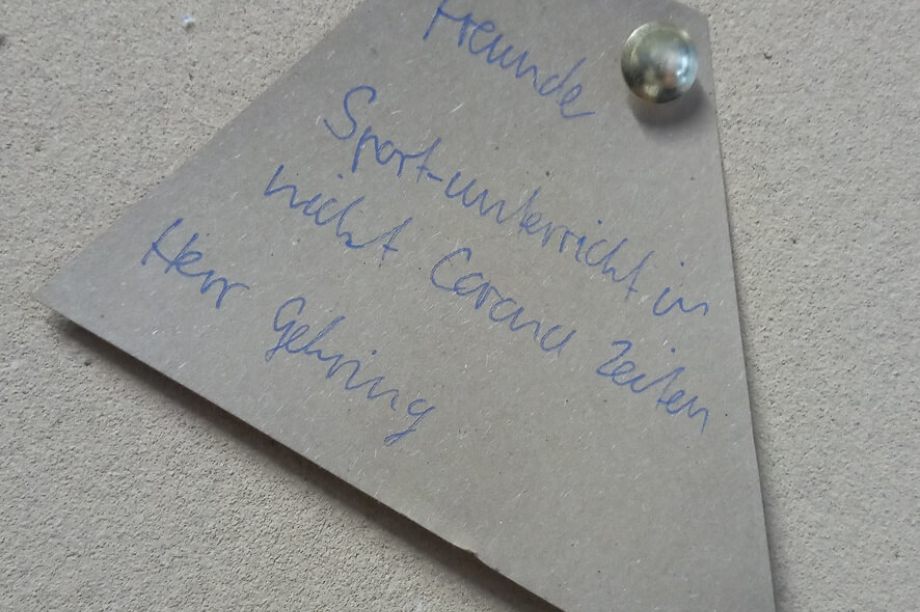 Freunde
Sport-unterricht in
nicht Corona Zeiten
Herr Gehring